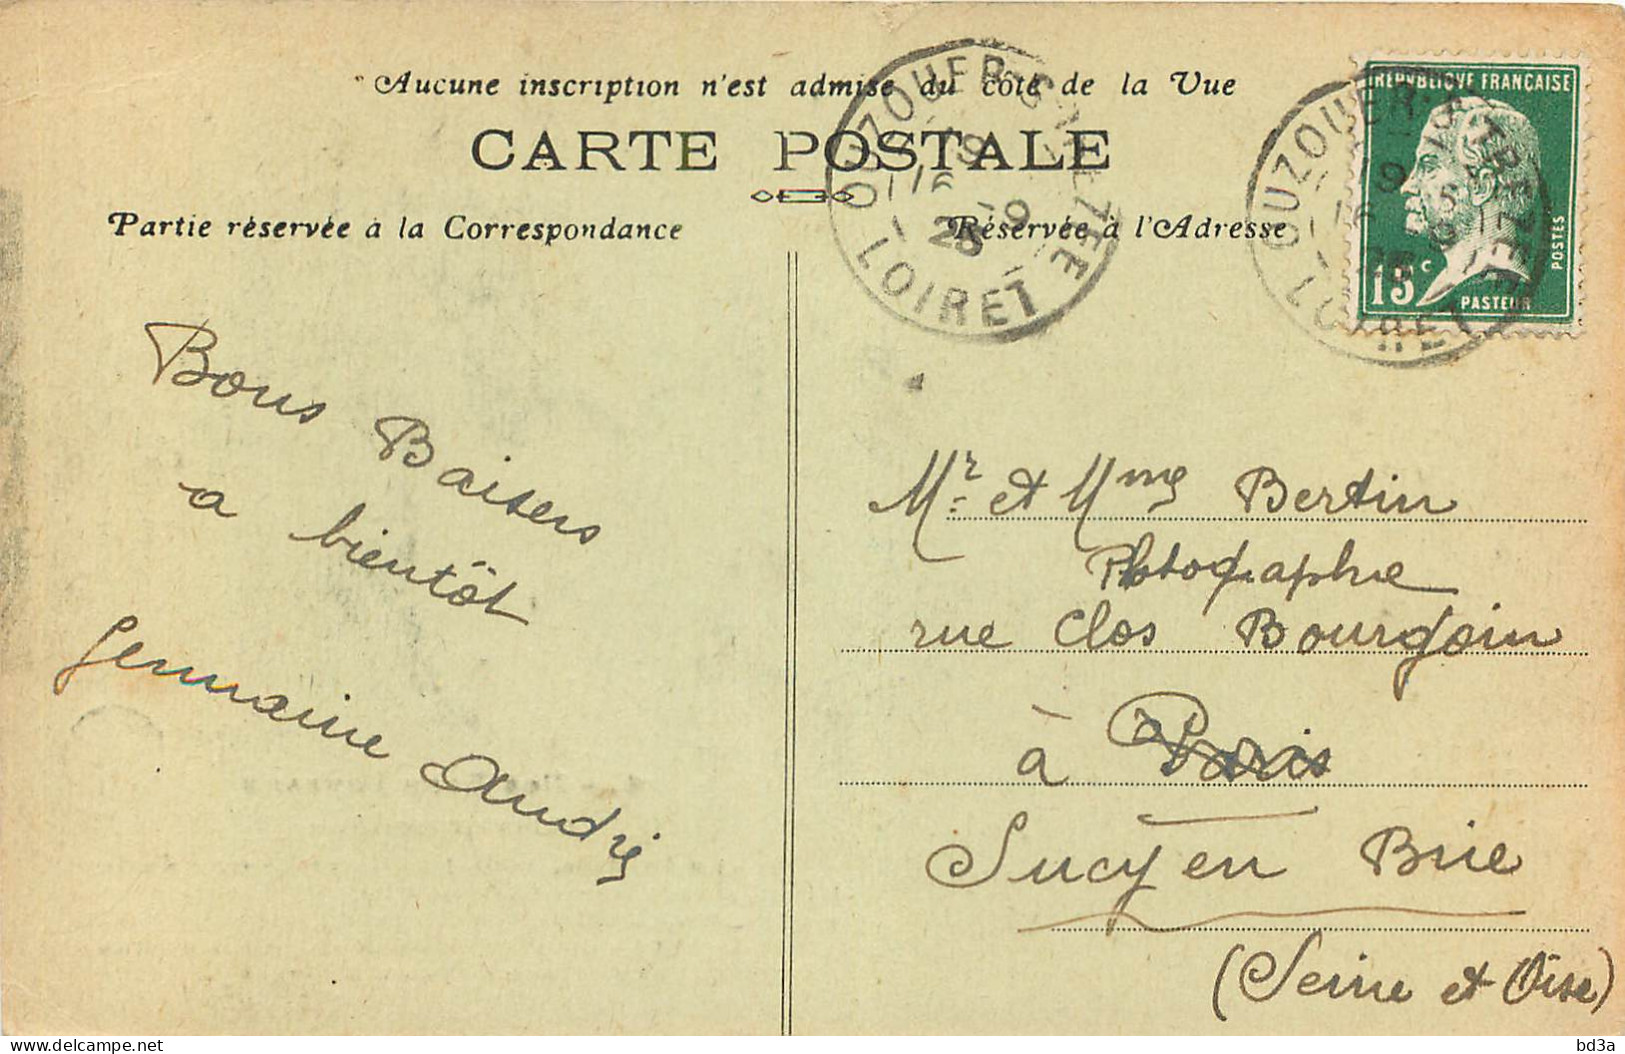 Aucune inscription n'est admise du côté de la Vue
CARTE POSTALE
Partie réservée à la Correspondance
Réservée à l'Adresse
OUZOUER-S-TREZEE
19
16 -9
25
LOIRET
OUZOUER-S-TREZEE
LOIRET
REPUBLIQUE FRANÇAISE
POSTES
15c
PASTEUR
Bons Baisers
a bientôt
Germaine André
Mr et Mme Bertin
Photographe
rue Clos Bourgoin
à Paris
Sucy en Brie
(Seine et Oise)
delcampe.net
bd3a